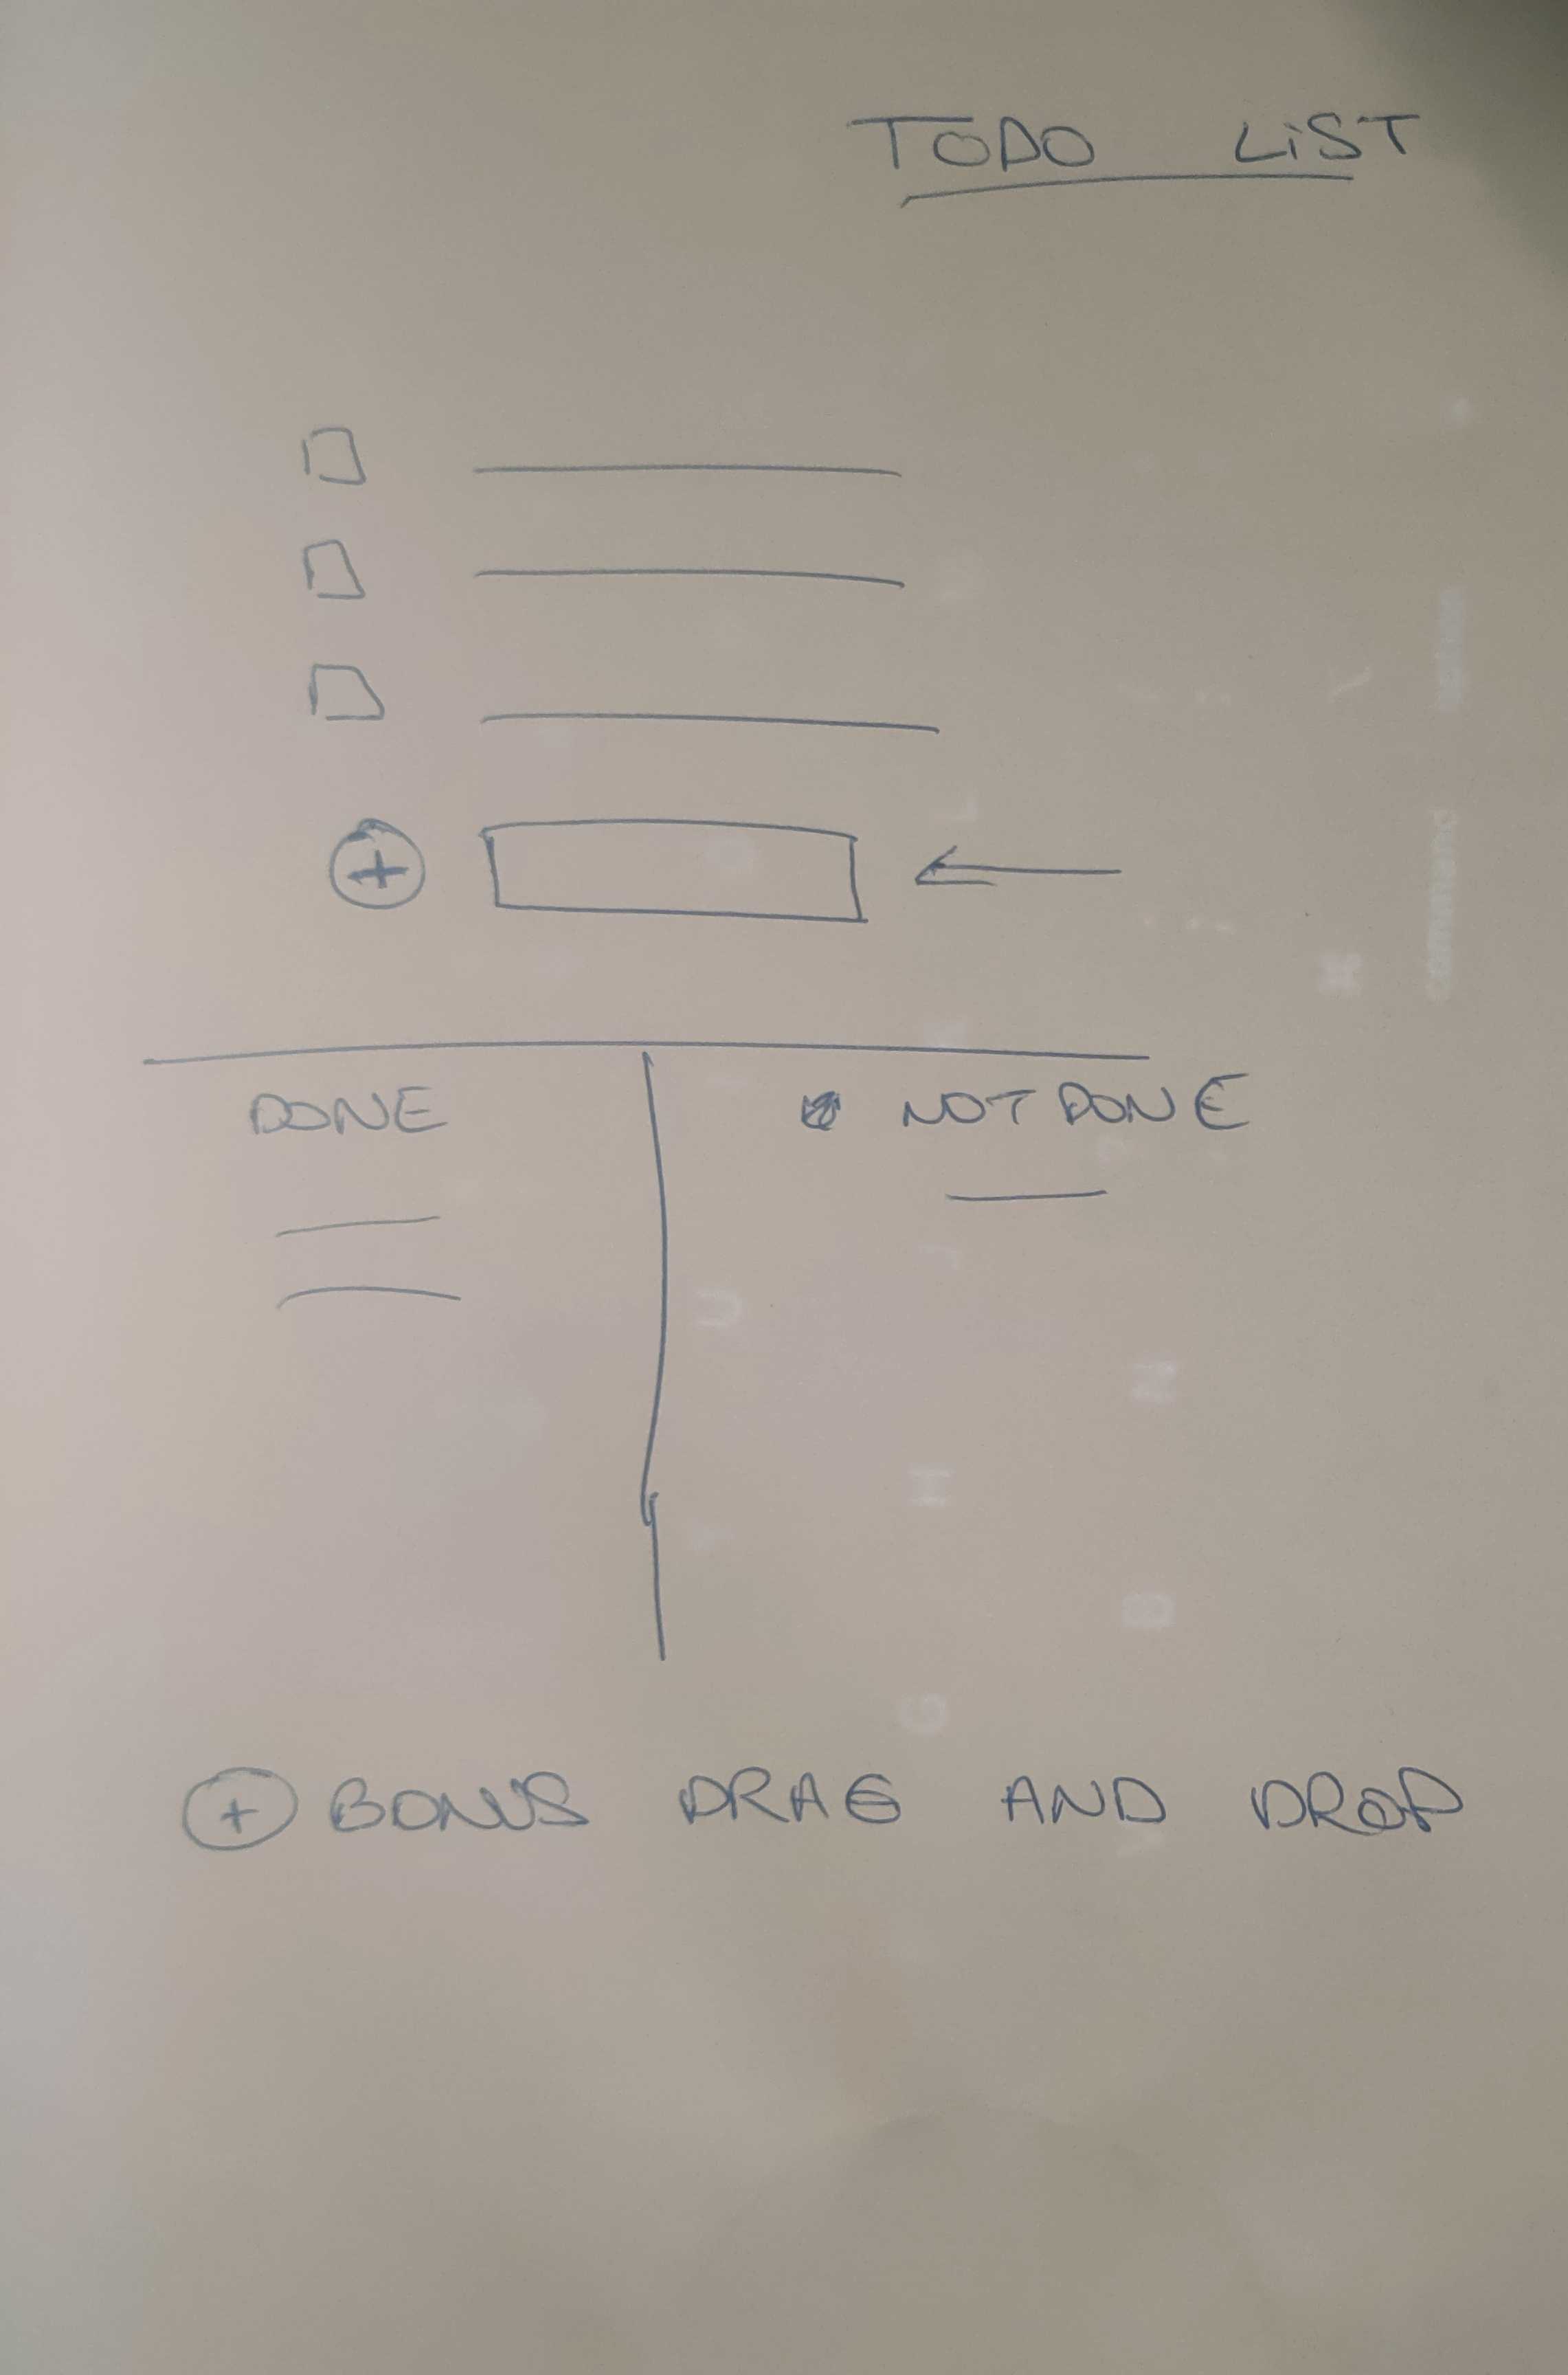 TODO LIST
+
DONE
NOT DONE
+ BONUS DRAG AND DROP